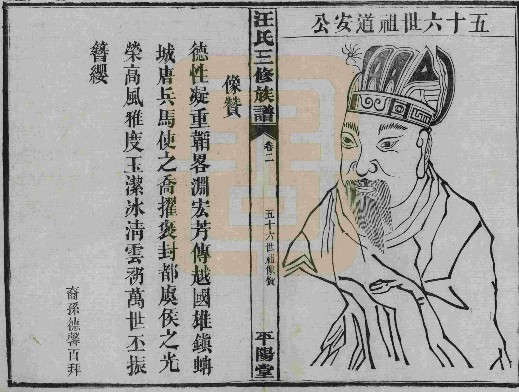 五十六世祖道安公
汪氏三修族譜
卷二
五十六世祖像贊
平陽堂
像贊
德性凝重韜畧淵宏芳傳越國雄鎮蚺
城唐兵馬使之喬擢褒封都虞侯之光
榮高風雅度玉潔冰清雲礽萬世丕振
簪纓
裔孫德馨百拜